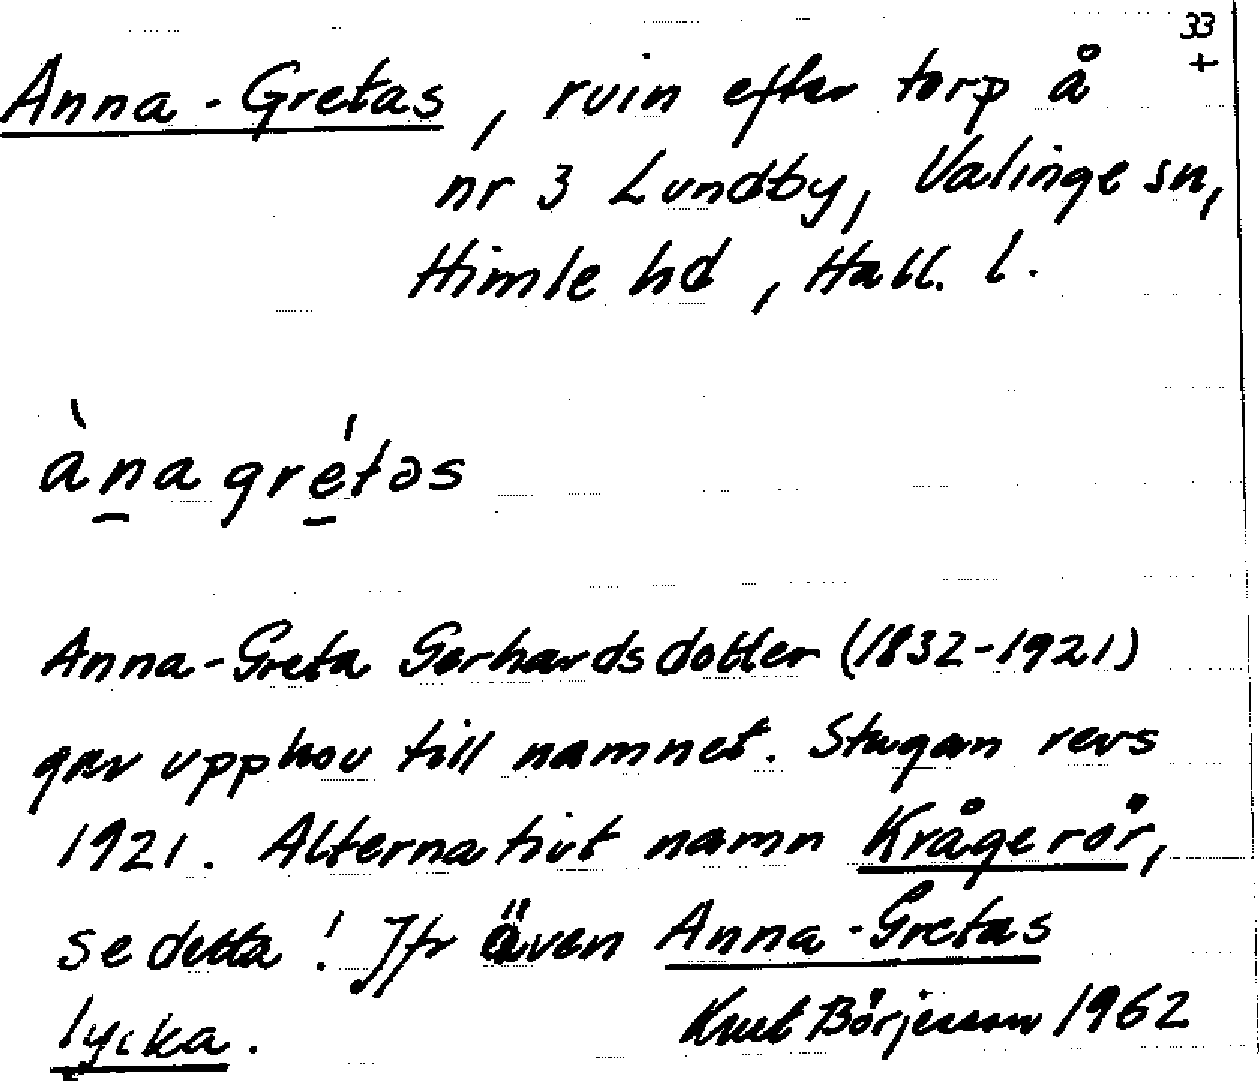 33
+
Anna-Gretas, ruin efter torp å
nr 3 Lundby, Valinge sn,
Himle hd, Hall. l.
ànagrétəs
Anna-Greta Gerhardsdotter (1832-1921)
gav upphov till namnet. Stugan revs
1921. Alternativt namn Krågerör,
se detta! Jfr även Anna-Gretas
lycka. Knut Börjesson 1962